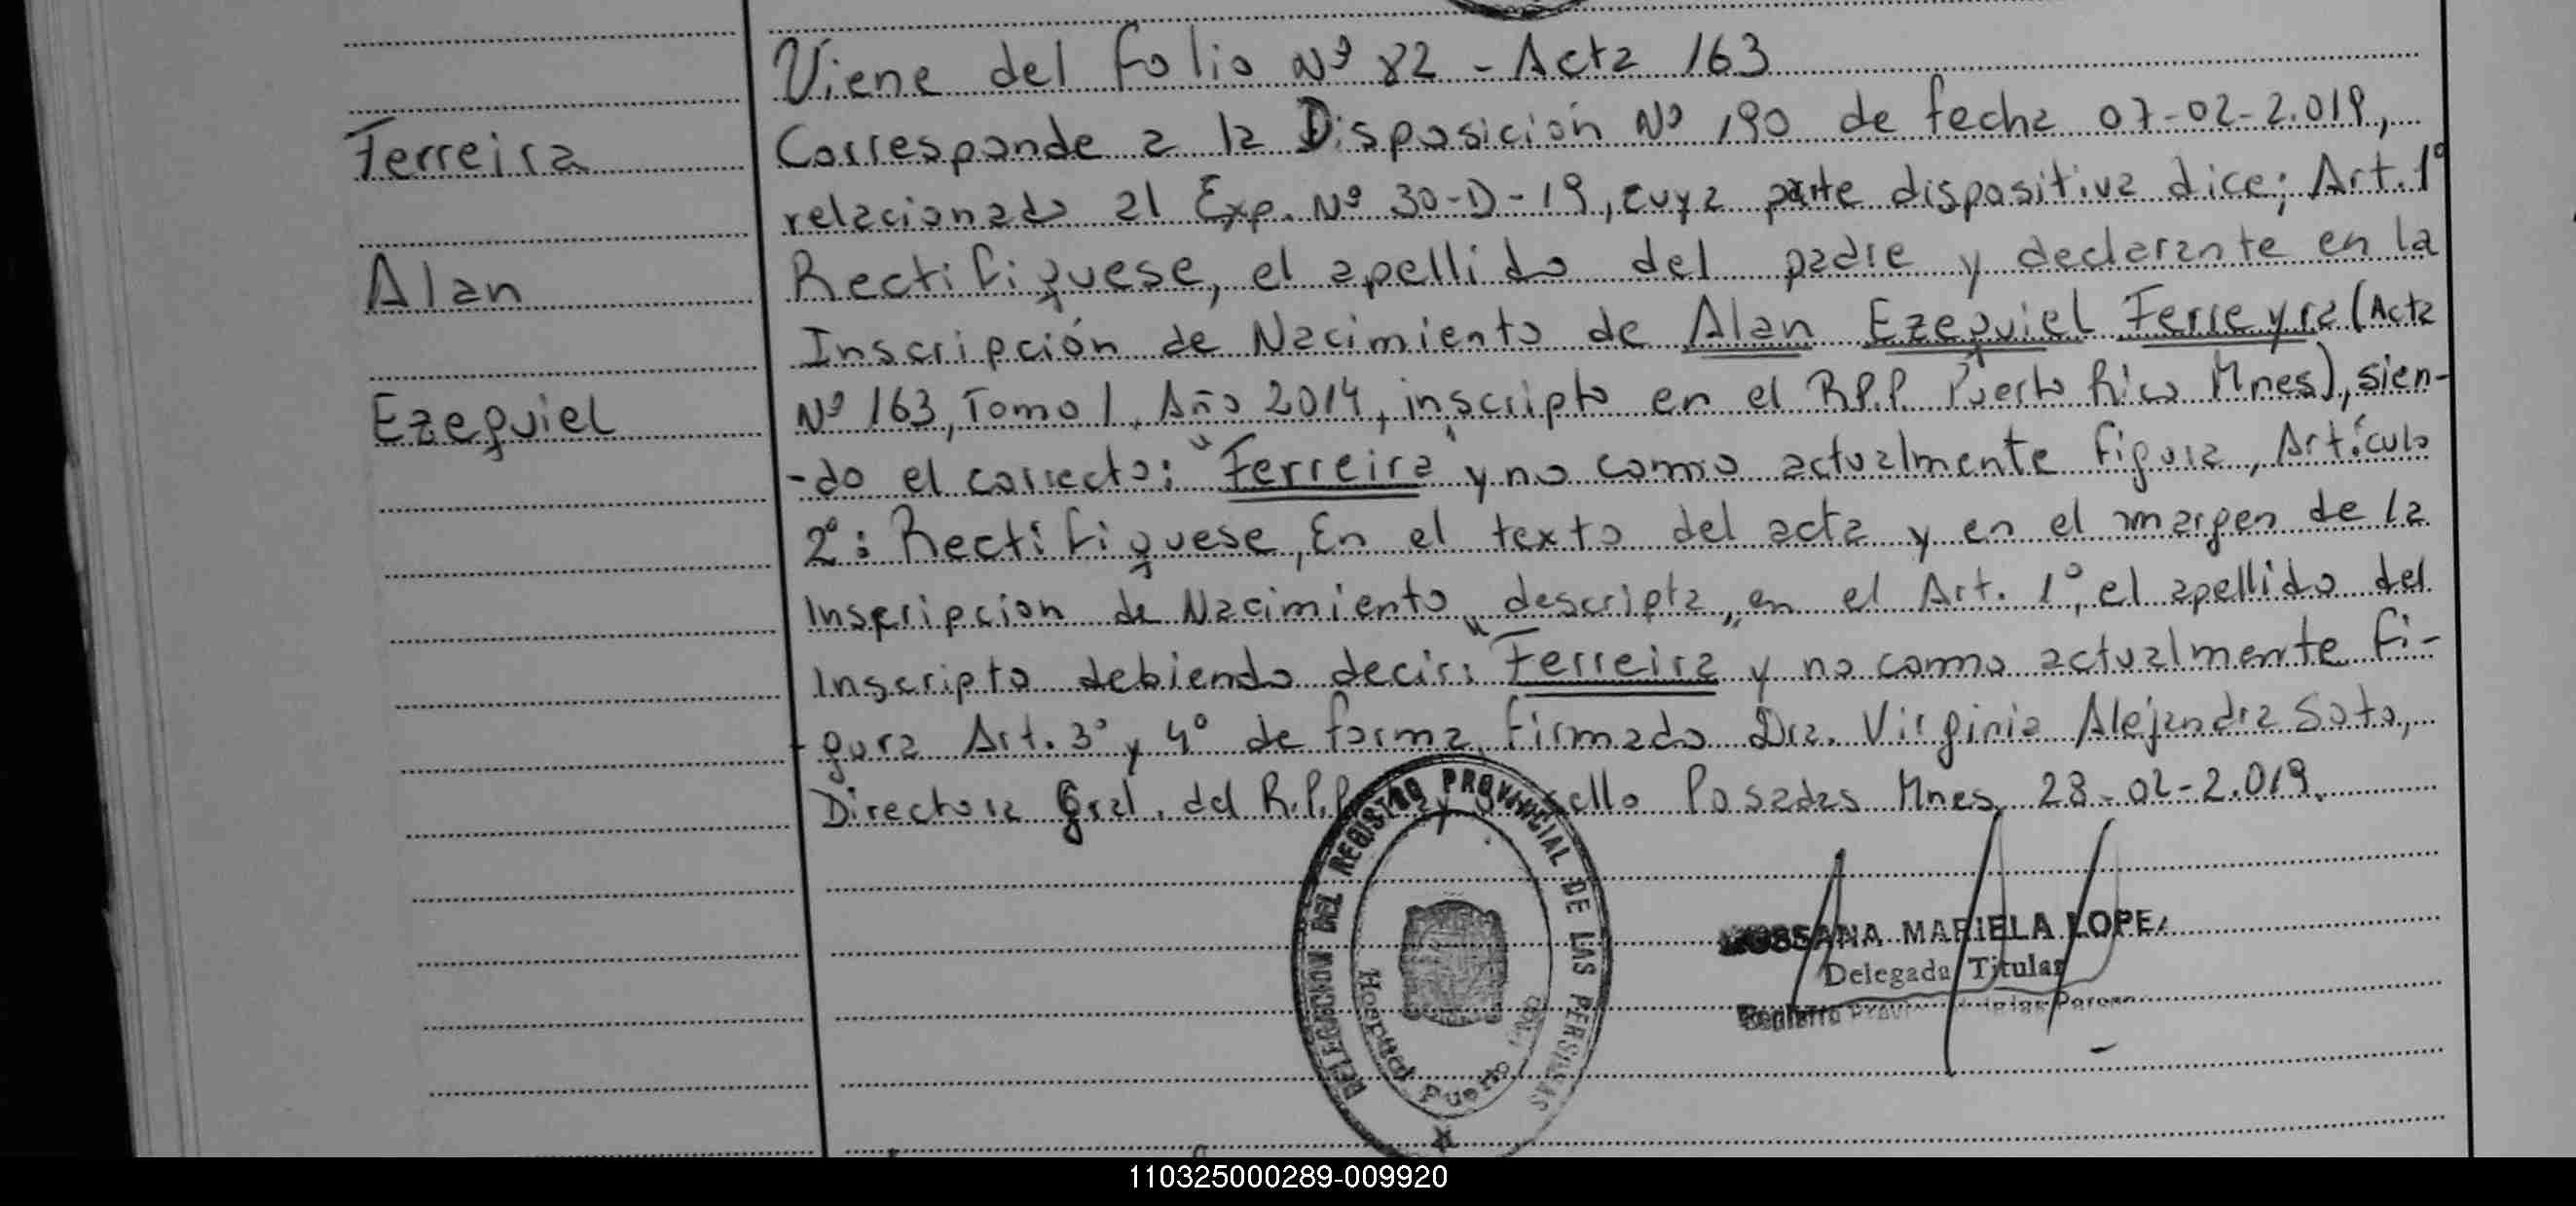 Viene del folio Nº 82 - Acta 163
Ferreira
Corresponde a la Disposición Nº 190 de fecha 07-02-2.019,
relacionado al Exp. Nº 30-D-19, cuya parte dispositiva dice; Art. 1º
Alan
Rectifiquese, el apellido del padre y declarante en la
Inscripción de Nacimiento de Alan Ezequiel Ferreyra (Acta
Ezequiel
Nº 163, Tomo 1, Año 2014, inscripto en el R.P.P. Puerto Rico Mnes), sien-
-do el correcto: "Ferreira" y no como actualmente figura, Artículo
2º: Rectifiquese, En el texto del acta y en el margen de la
Inscripcion de Nacimiento descripta, en el Art. 1º, el apellido del
Inscripto debiendo decir: "Ferreira" y no como actualmente fi-
-gura Art. 3º y 4º de forma, firmado Dra. Virginia Alejandra Soto,
Directora Gral. del R.P.P. y sello Posadas Mnes, 28-02-2.019.
DELEGACION DEL REGISTRO PROVINCIAL DE LAS PERSONAS
Hospital Puerto Rico
ROSSANA MARIELA LOPEZ
Delegada Titular
Registro
110325000289-009920